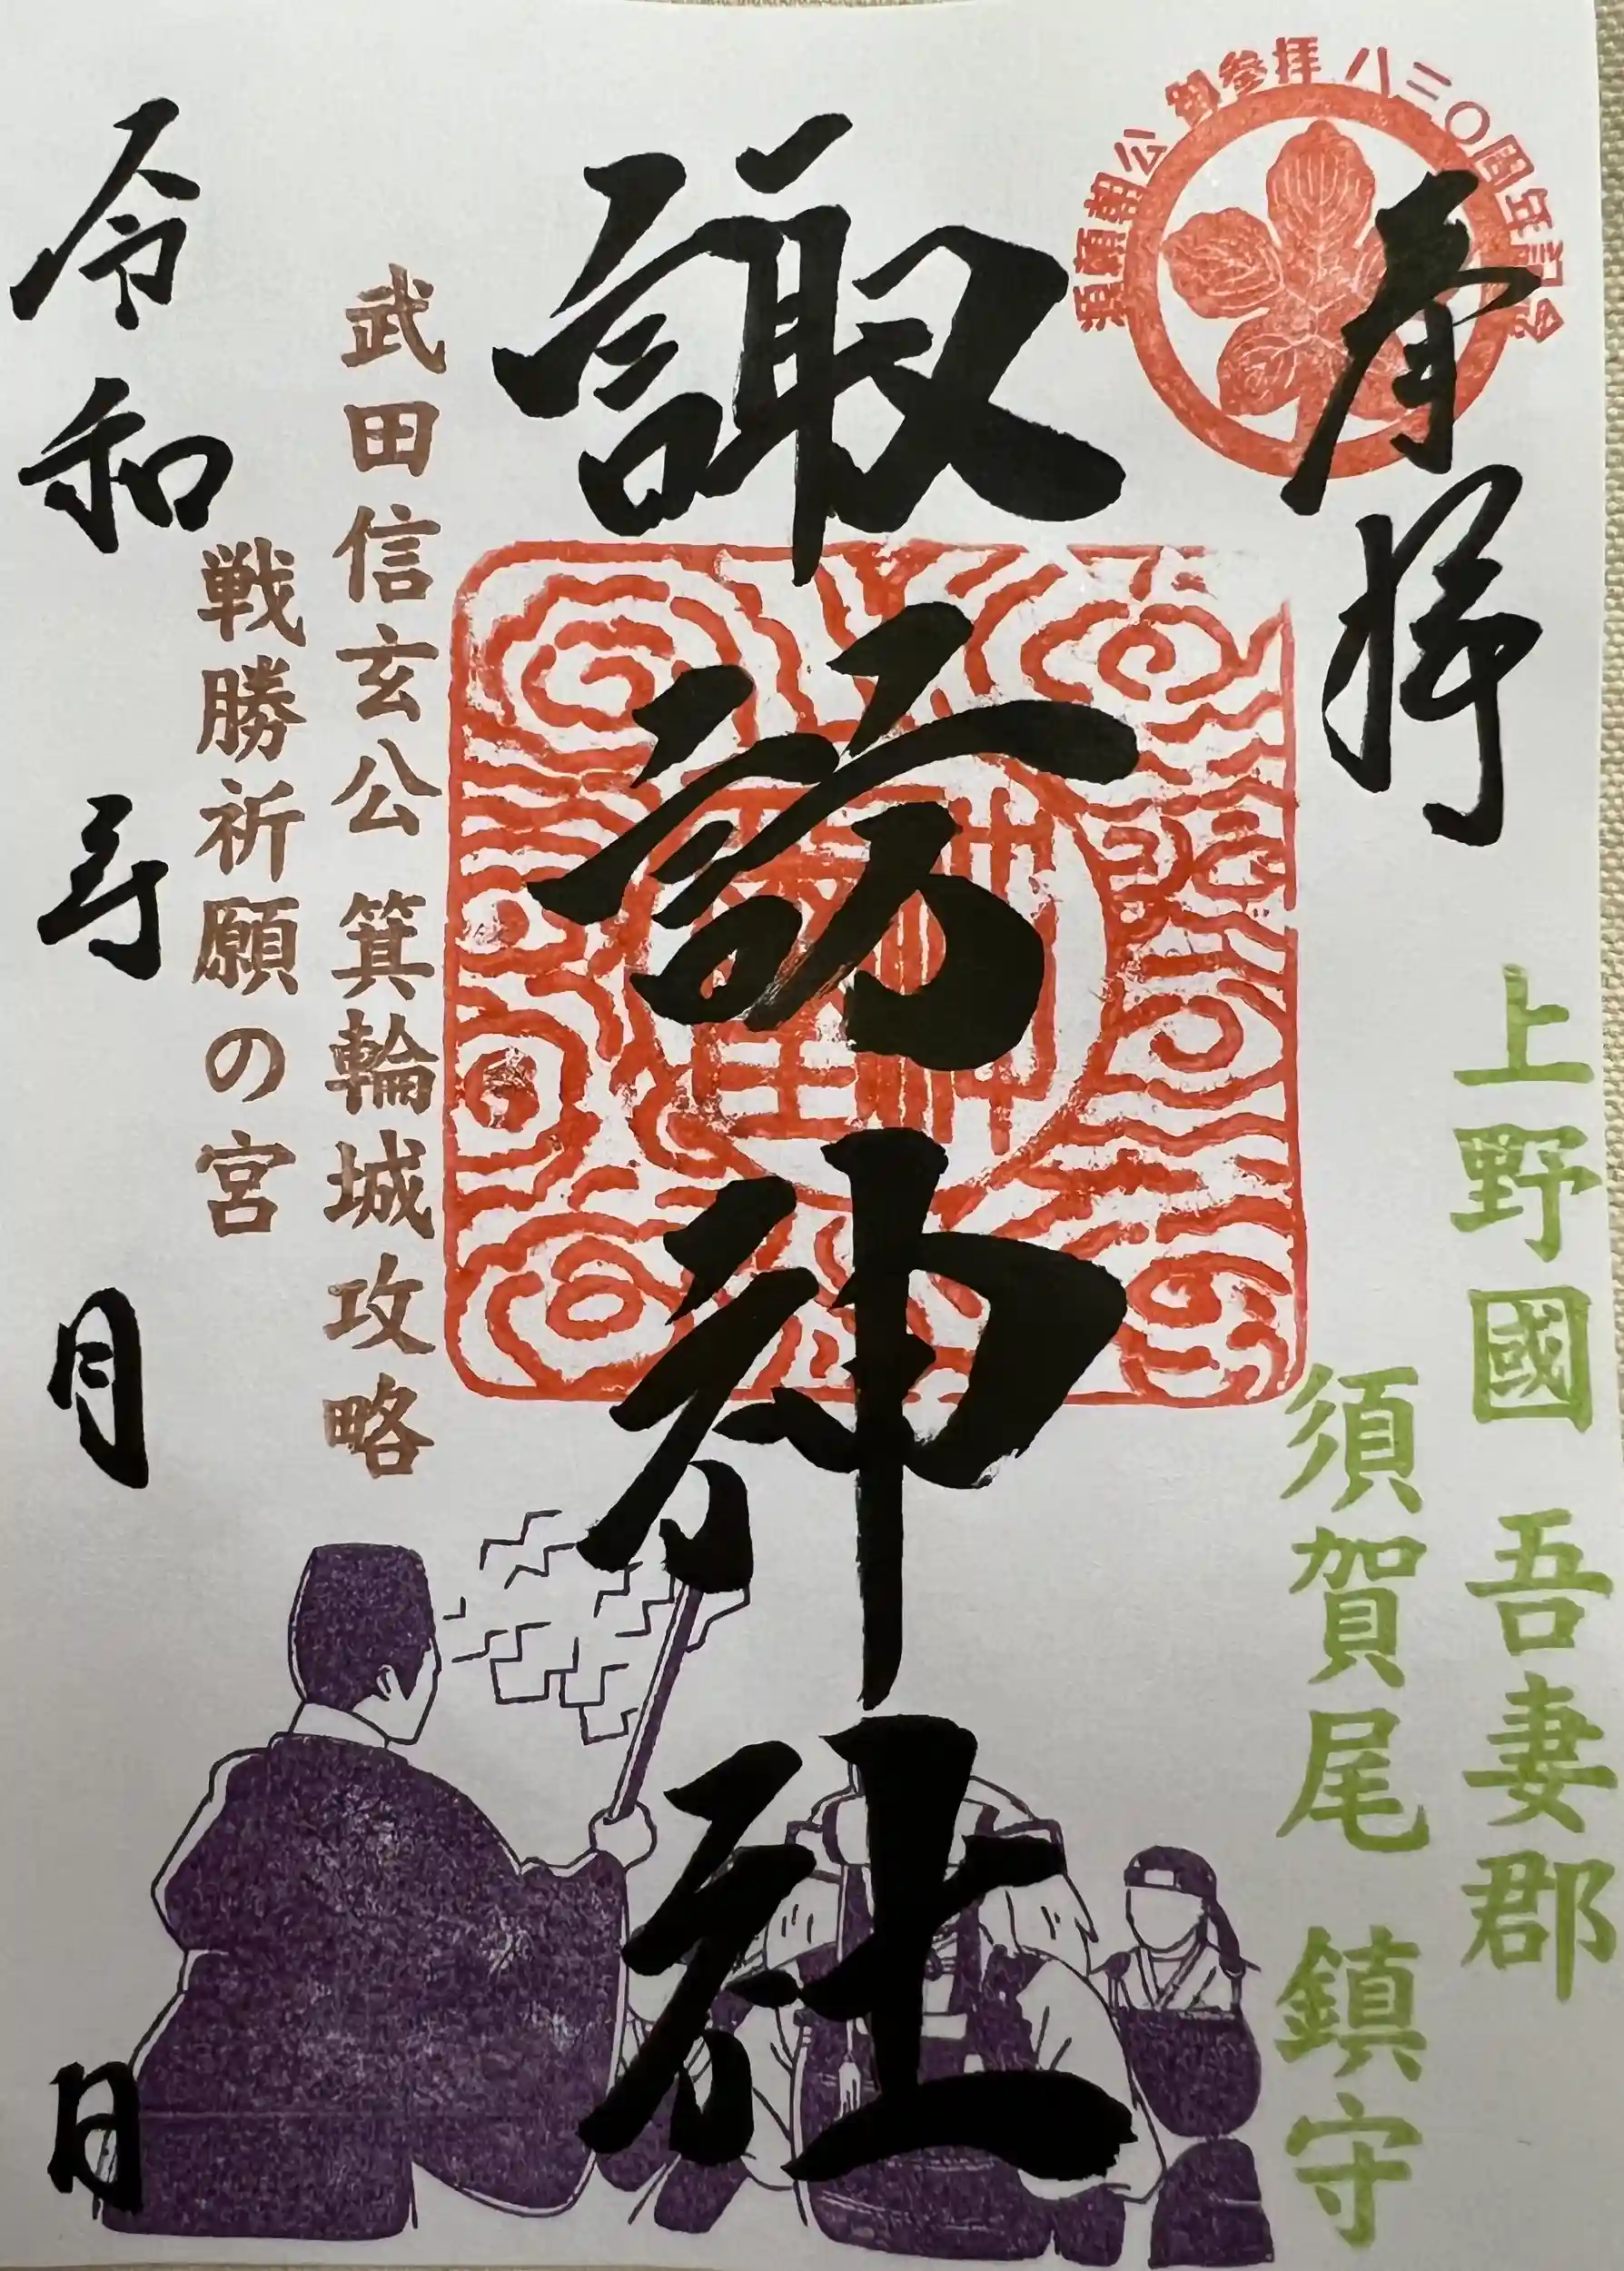 奉拝
源頼朝公 御参拝 八三〇周年記念
上野國 吾妻郡
須賀尾 鎮守
諏訪神社
武田信玄公 箕輪城攻略
戦勝祈願の宮
令和 年 月 日